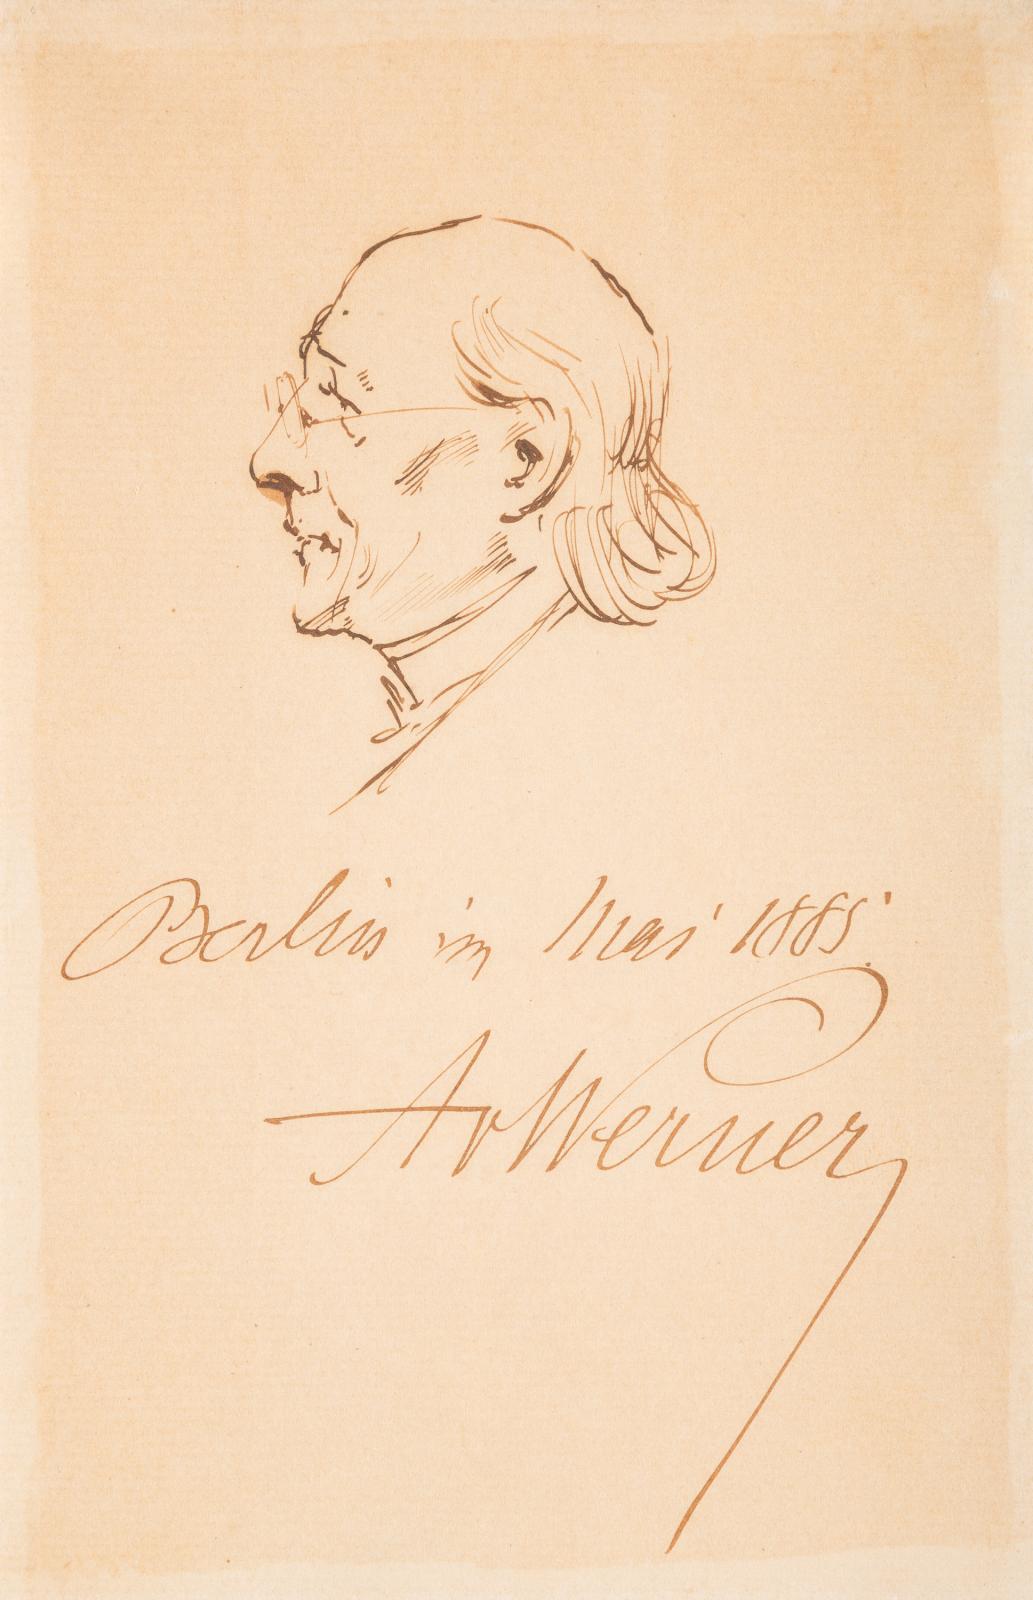 Berlin im Mai 1885.
AvWerner